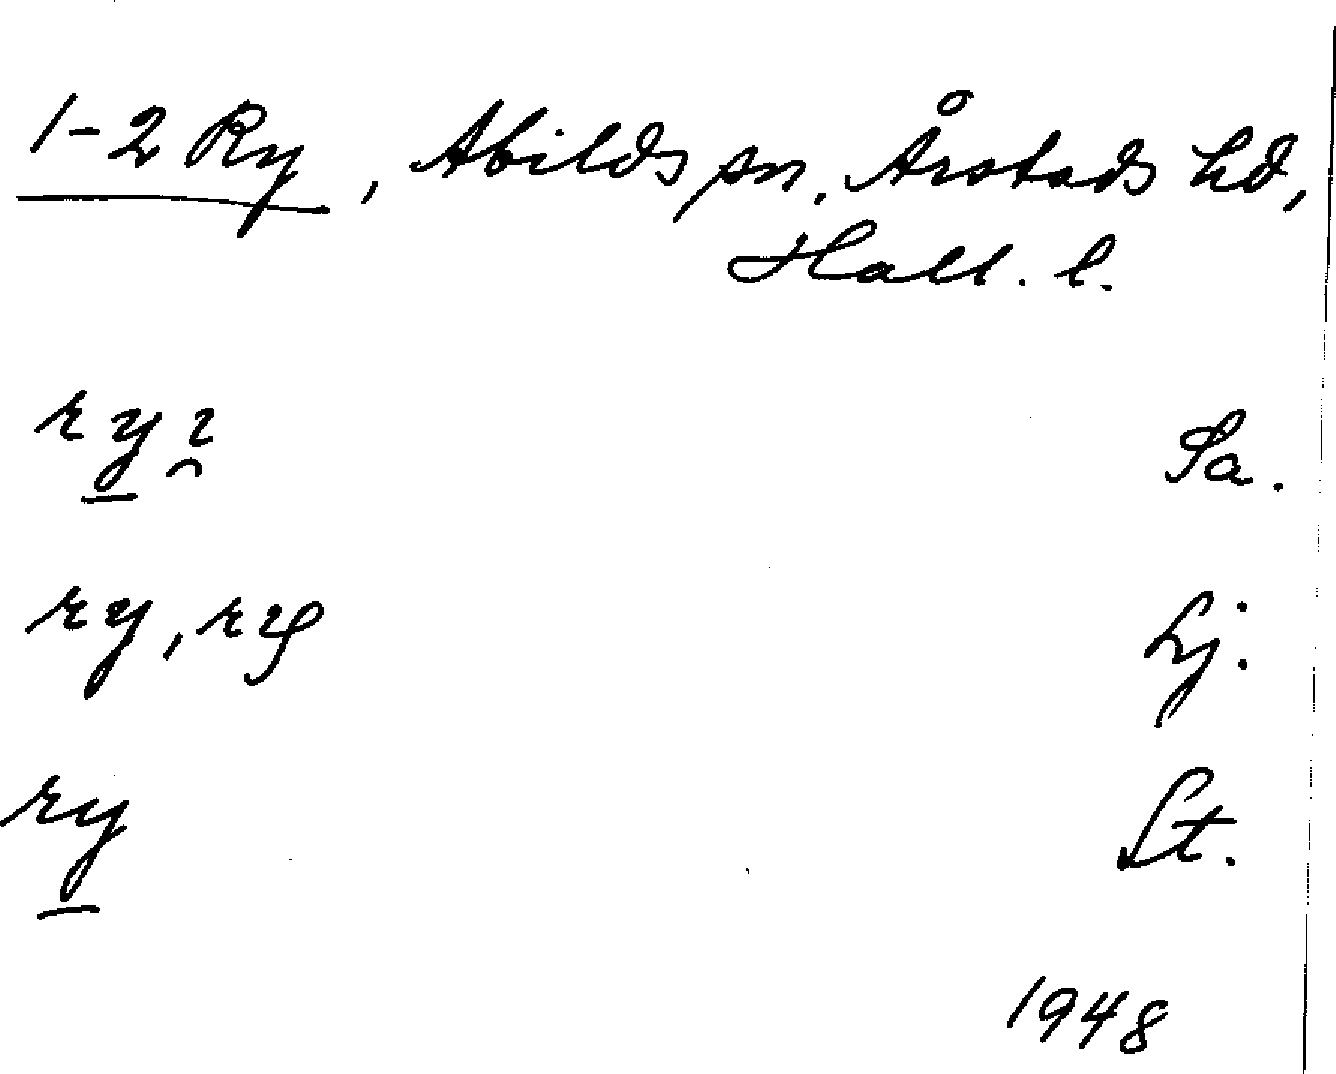 1-2 Ry, Abilds sn. Årstads hd,
Hall. l.
ry Sa.
ry, Lj.
ry St.
1948